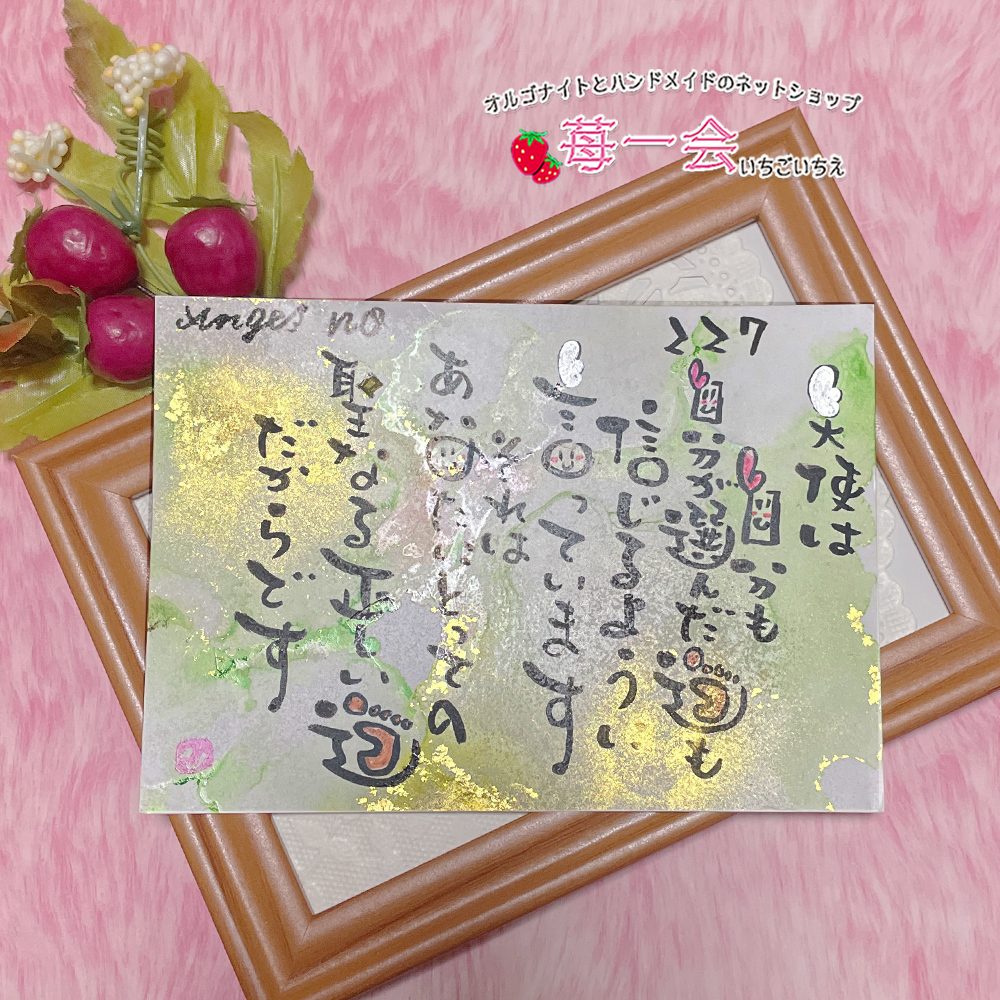 オルゴナイトとハンドメイドのネットショップ
苺一会
いちごいちえ
Angel no 227
天使は
自分も
自分が選んだ道も
信じるように
言っています
それは
あなたにとっての
聖なる正しい道
だからです